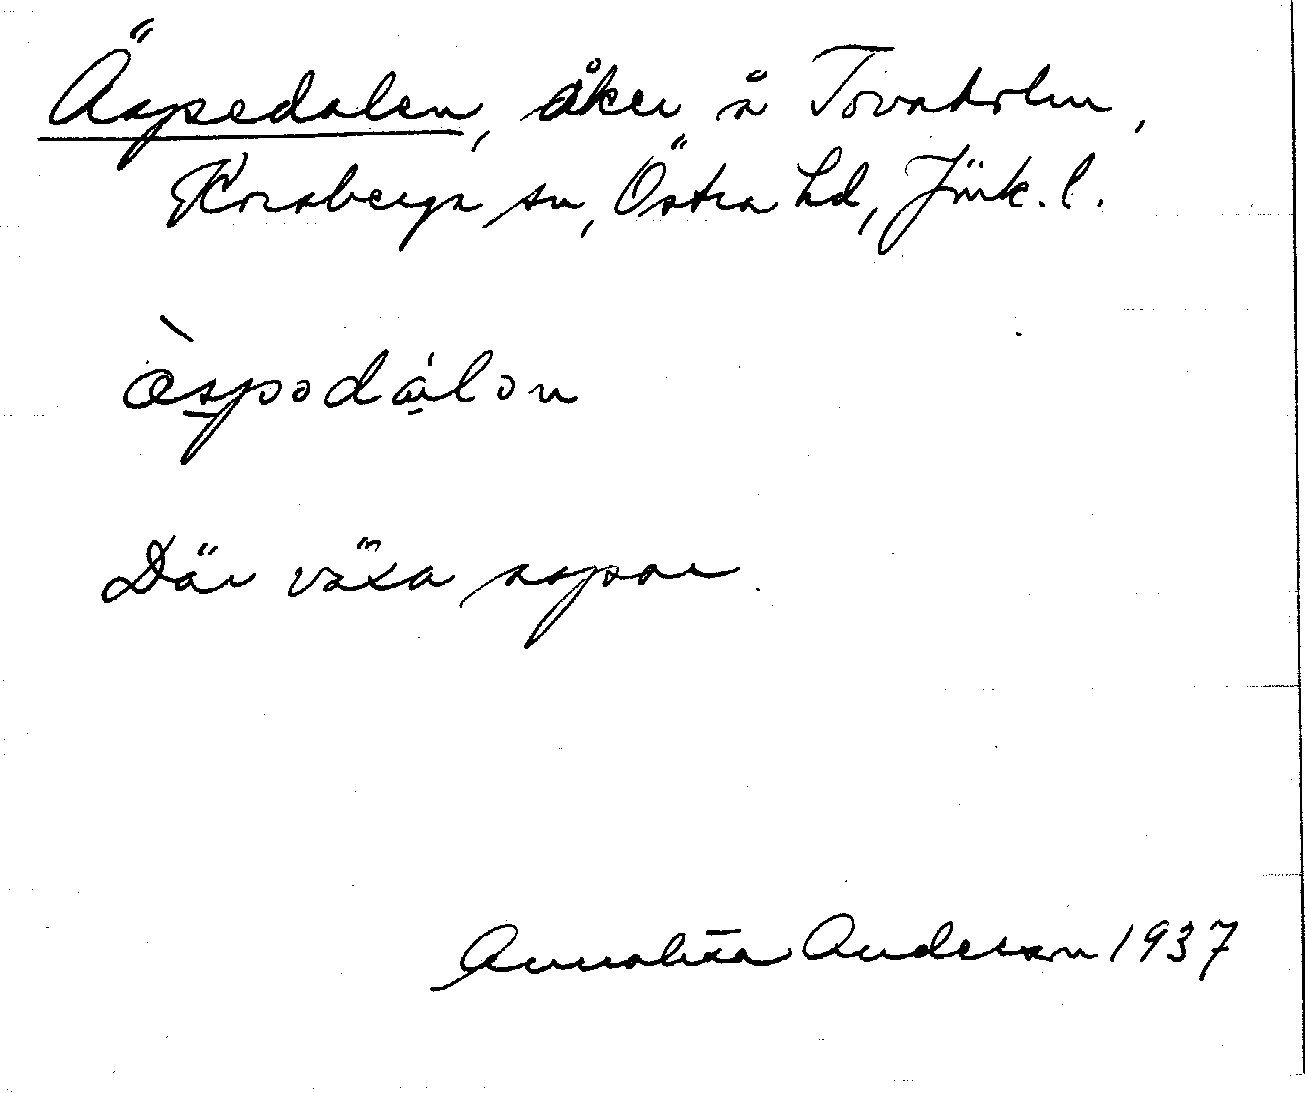 Äspedalen, åker å Tovaholm,
Korsberga sn, Östra hd, Jönk. l.
æ̀spədálən
Där växa aspar.
Annalisa Anderson 1937